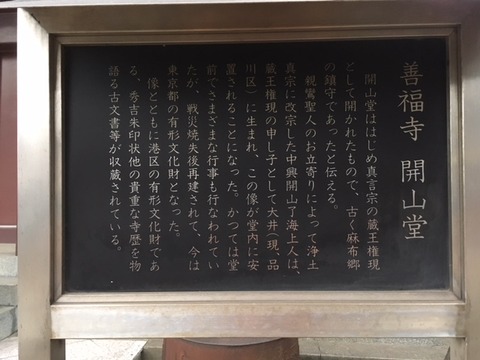 善福寺 開山堂
開山堂ははじめ真言宗の蔵王権現
として開かれたもので、古く麻布郷
の鎮守であったと伝える。
親鸞聖人のお立寄りによって浄土
真宗に改宗した中興開山了海上人は、
蔵王権現の申し子として大井（現 品
川区）に生まれ、この像が堂内に安
置されることになった。かつては堂
前でさまざまな行事も行なわれてい
たが、戦災焼失後再建されて、今は
東京都の有形文化財となった。
像とともに港区の有形文化財であ
る、秀吉朱印状他の貴重な寺歴を物
語る古文書等が収蔵されている。